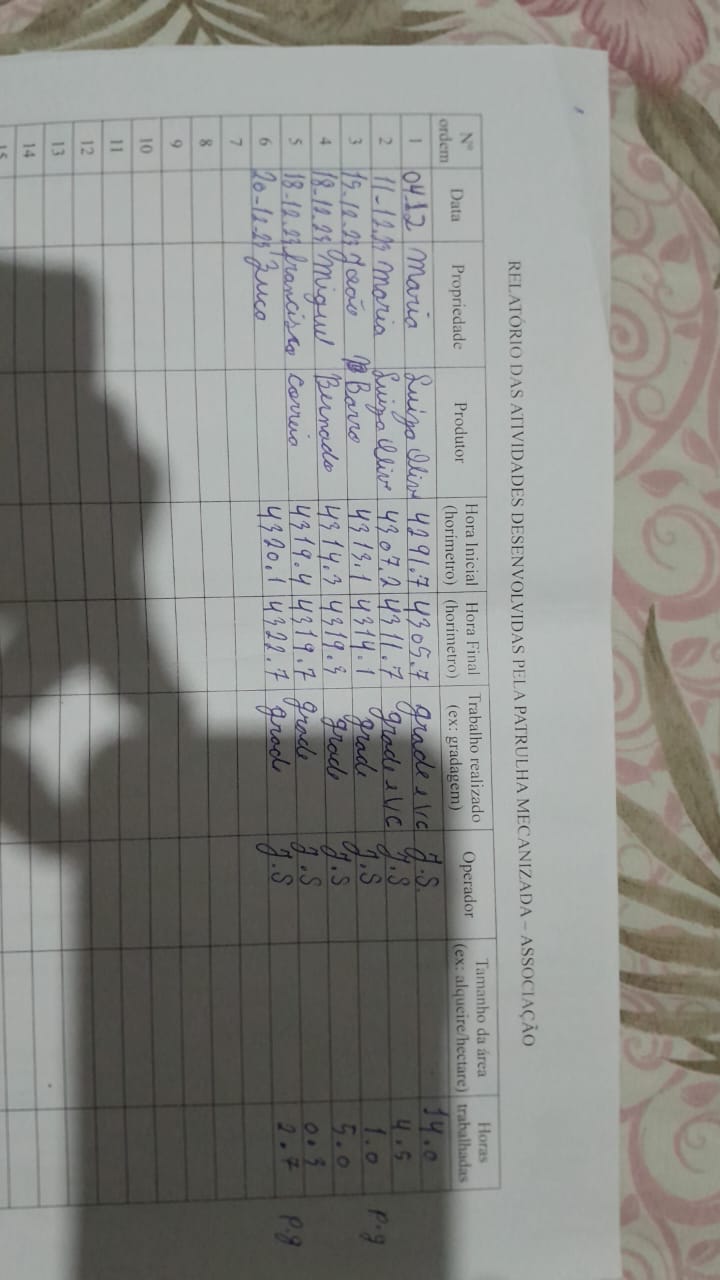 RELATÓRIO DAS ATIVIDADES DESENVOLVIDAS PELA PATRULHA MECANIZADA – ASSOCIAÇÃO
Nº ordem Data Propriedade Produtor Hora Inicial (horímetro) Hora Final (horímetro) Trabalho realizado (ex: gradagem) Operador Tamanho da área (ex: alqueire/hectare) Horas trabalhadas
1 04.12 Maria Luiza Oliv 4291.7 4305.7 grade e VC J.S. 14.0
2 11-12.23 Maria Luiza Oliv 4307.2 4311.7 grade e VC J.S 4.5
3 15.12.23 João Barro 4313.1 4314.1 grade J.S 1.0 P.g
4 18.12.23 Miguel Bernado 4314.3 4319.3 grade J.S 5.0
5 18.12.23 francisco correia 4319.4 4319.7 grade J.S 0.3
6 20-12.23 Zuca 4320.1 4322.7 grade J.S 2.7 P.g
7
8
9
10
11
12
13
14
15